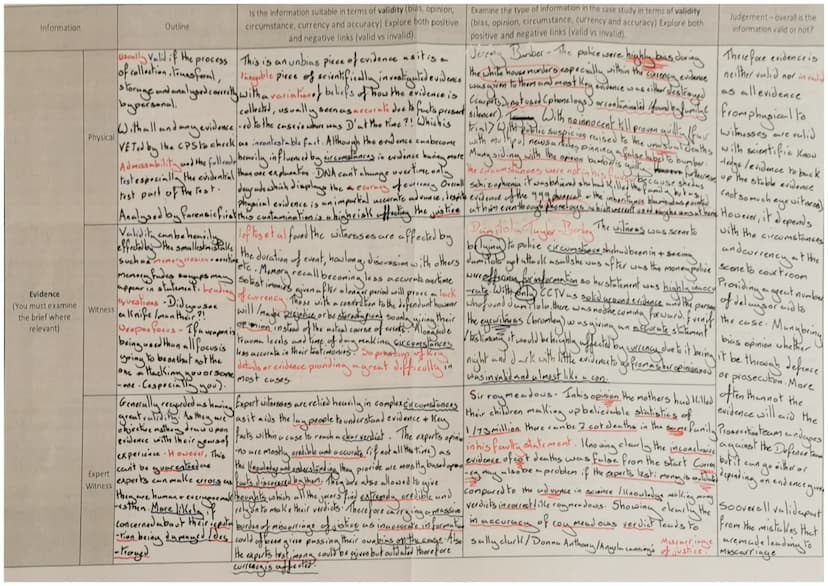 Information
Outline
Is the information suitable in terms of validity (bias, opinion,
circumstance, currency and accuracy) Explore both positive
and negative links (valid vs invalid)
Examine the type of information in the case study in terms of validity
(bias, opinion, circumstance, currency and accuracy) Explore both
positive and negative links (valid vs invalid).
Judgement – overall is the
information valid or not?
Evidence
(You must examine
the brief where
relevant)
Physical
Usually Valid if the process
of collection, transferal,
storage and analysed correctly
by personal.
With all and any evidence
VETed by the CPS to check
Admissability and the full code
test especially the evidential
test part of the test.
Analysed by forensic first
This is an unbias piece of evidence as it is a
tangible piece of scientifically investigated evidence
with a variation of beliefs of how the evidence is
collected, usually seen as accurate due to facts present
-ed to the case in where was D at the time?! Which is
an incontestable fact. Although the evidence can become
heavily influenced by circumstances in evidence being more
than one explanation. DNA can't change overtime only
degrade which displays the accuracy of currency. Overall
physical evidence is an impartial accurate
this contamination is a high risk affecting the justice
Jeremy Bamber - The police were highly bias during
the white house murders especially within the currency evidence
was given to them and most key evidence was either destroyed
(carpets), not used (phonelogs) or contaminated (found
silencer). With no innocent till proven guilty (fair
trial?) With public suspicies raised to the unnatural deaths
with multipul newspapers pinning a false label to bamber.
Many siding with the opinion bamber is guilty. However
the circumstances were not in his favour because she has
schizophrenia it was believed she had killed the family but as
evidence of the 999 phonecall + the inheritance blame was pointed
Therefore evidence is
neither valid nor invalid
as all evidence
from physical to
witnesses are valid
with scientific know
-ledge/evidence to back
up the stable evidence
(not so much eye witness)
However, it depends
with the circumstances
and currency at the
scene to courtroom
Providing a great number
of delays or aid to
the case. Many bring
bias opinion whether
it be through defence
or prosecution. More
often than not the
evidence will aid the
Prosecution team and
against the Defence team
but it can go either or
depending on evidence given
Witness
Validity can be heavily
effected by the smallest mistake
such as memory
memory fades so gaps may
appear in statement. leading
questions - Did you see
a knife (mean then?!)
Weapon focus - If a weapon is
being used than all focus is
going to be on that not the
one attacking you or some
-one (especially you).
Loftus et al found the witnesses are affected by
the duration of event, how long discussion with others
etc. Memory recall becoming less accurate overtime
so testimonies given after a longer period will prove a lack
of currency. Those with a connection to the dependant however
will/may be
opinion instead of the actual course of events. Alongside
trauma levels and time of day making circumstances
less accurate in their testimonies. So providing of key
details or evidence providing a great difficulty in
most cases.
Damilola Taylor - Bromley The witness was seen to
be lying to police circumstance she had been in + seeing
damilola get attack as all she was after was the money police
were offering for information so her statement was highly inaccu
-rate. With only CCTV as solid ground evidence and the person
who found damilola there was no one coming forward. Even if
the eyewitness (bromley) was giving an accurate statement/
testimony, it would be highly affected by currency due to it being
night and dark with little evidence to go from as her opinion
was invalid and almost like a con.
Expert
Witness
Generally regarded as having
great validity. As they are
objective as they draw upon
evidence with their years of
experience. However, this
can't be guarenteed as
experts can make errors as
they are human or even
esthen. More likely if
concerned about their reputa
-tion being damaged/des
-troyed
Expert witnesses are relied heavily in complex circumstances
as it aids the lay people to understand evidence + key
facts within a case to reach a clear verdict. The experts opin
-ions are mostly credible and accurate (if not all the time) as
the knowledge and understanding they provide are mostly based upon
facts discovered by them. They are also allowed to give
thoughts which all the jurys find extremely credible and
rely on to make their verdicts. Therefore carrying a massive
burden of miscarriage of justice as inaccurate information
could of been given passing their own bias on the case. Also
the experts testimony could be given but outdated therefore
currency is affected.
Sir roy meadous. In his opinion the mothers had killed
their children making up believable statistics of
1/73 million there can be 2 cot deaths in the same family
in his faulty statement. Knowing clearly the inconclusive
evidence of cot deaths was false from the start. Curren
-cy may also be a problem if the experts testimony is outdated
compared to the advance in science/knowledge making many
verdicts incorrect like roy meadous. Showing clearly the
inaccuracy of roy meadous verdict leads to
sally clark/Donna Anthony/Angela cannings Miscarriages
of justice
So overall valid apart
from the mistakes that
are made leading to
miscarriage